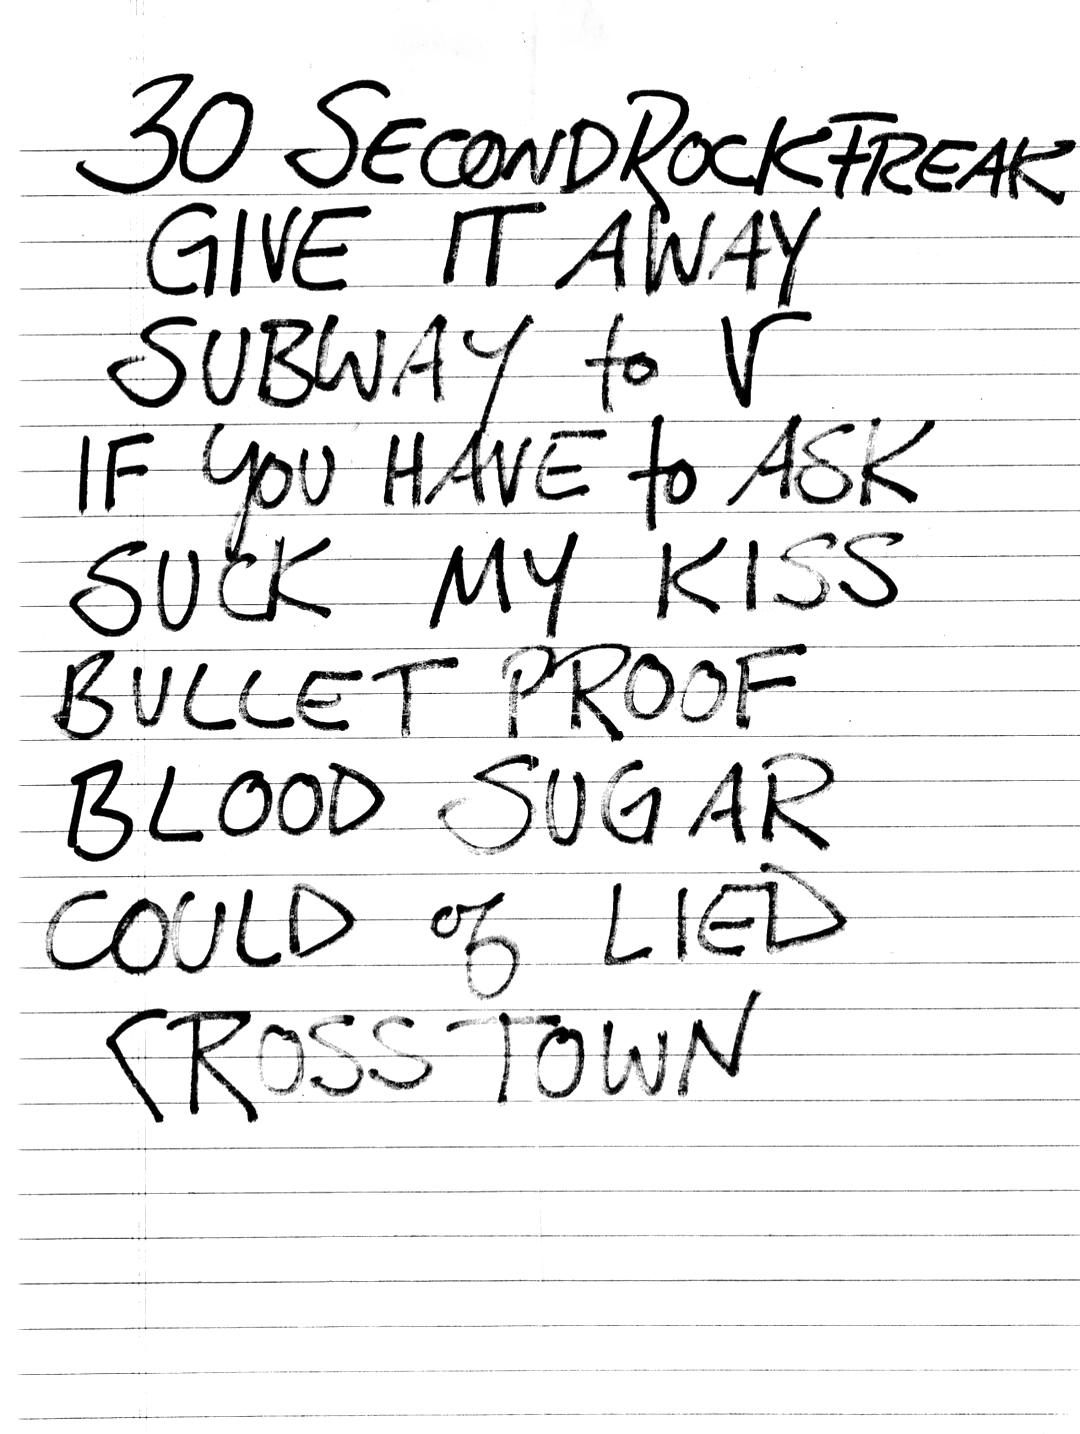 30 SECOND ROCK FREAK
GIVE IT AWAY
SUBWAY to V
IF you HAVE to ASK
SUCK MY KISS
BULLET PROOF
BLOOD SUGAR
COULD of LIED
CROSS TOWN